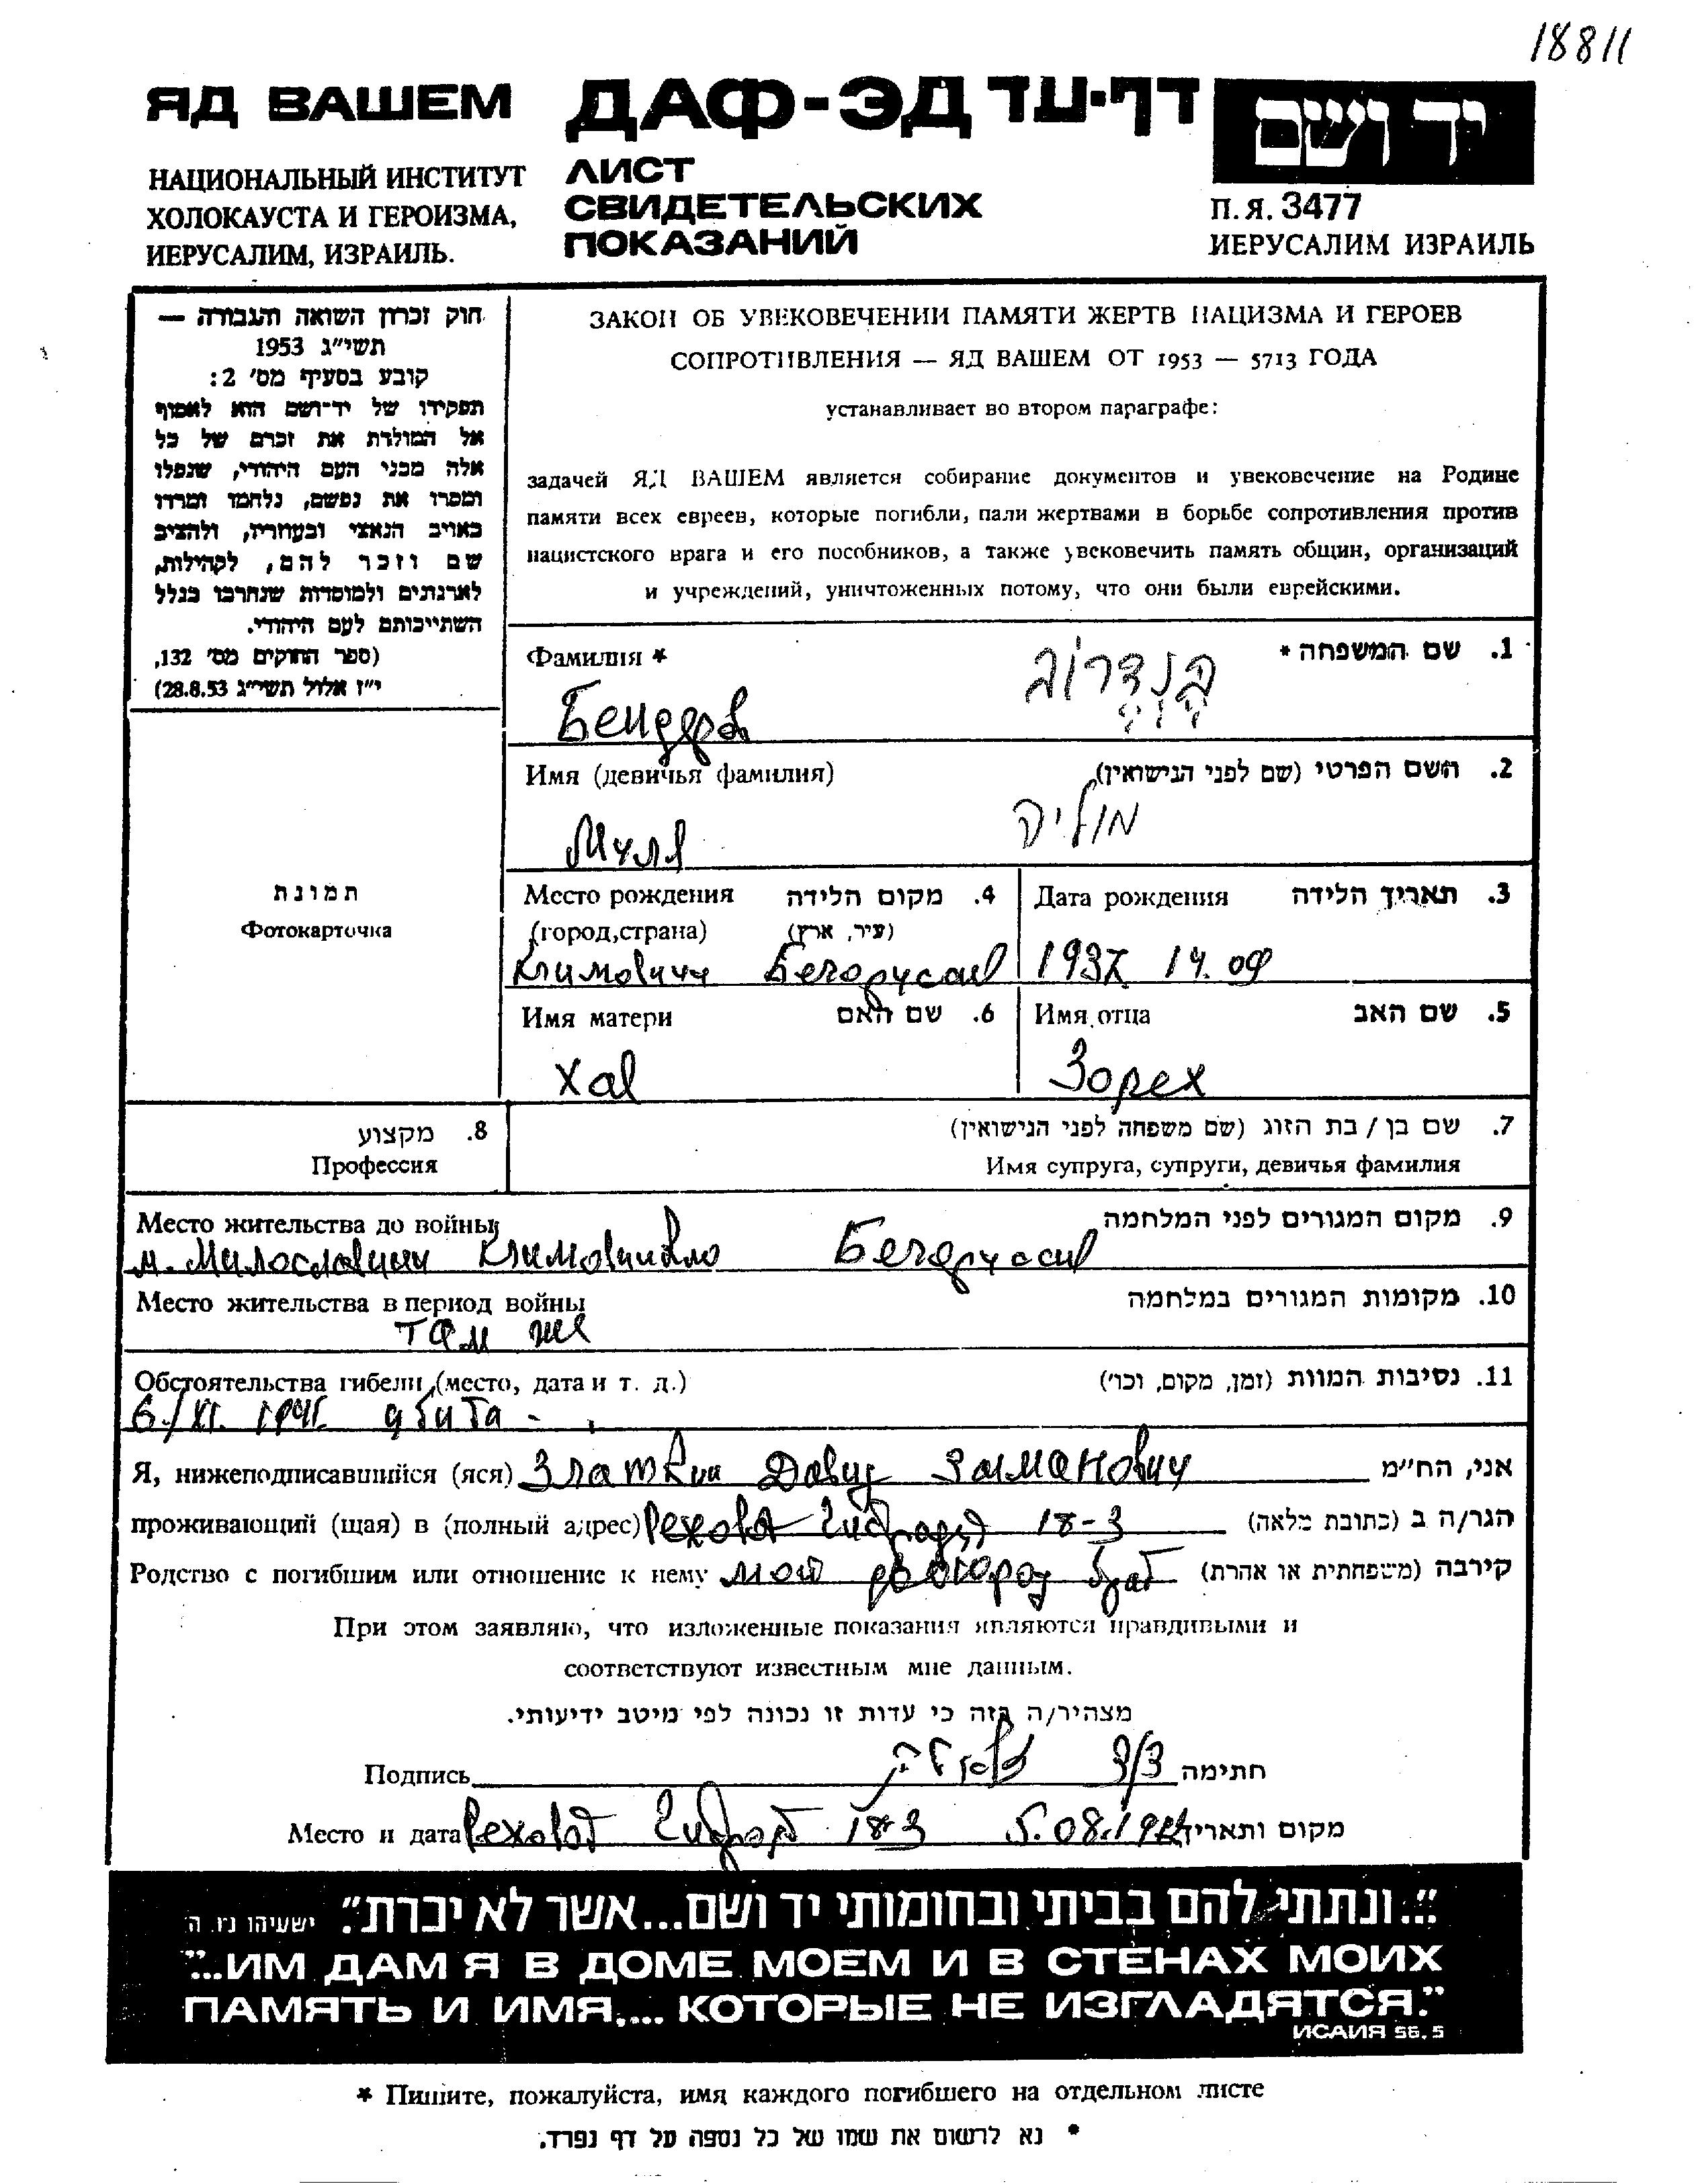 18811
ЯД ВАШЕМ ДАФ-ЭД דף-עד יד ושם
НАЦИОНАЛЬНЫЙ ИНСТИТУТ
ХОЛОКАУСТА И ГЕРОИЗМА,
ИЕРУСАЛИМ, ИЗРАИЛЬ.
ЛИСТ
СВИДЕТЕЛЬСКИХ
ПОКАЗАНИЙ
П.Я. 3477
ИЕРУСАЛИМ ИЗРАИЛЬ
חוק זכרון השואה והגבורה —
תשי"ג 1953
קובע בסעיף מס' 2:
תפקידו של יד-ושם הוא לאסוף
אל המולדת את זכרם של כל
אלה מבני העם היהודי, שנפלו
ומסרו את נפשם, נלחמו ומרדו
באויב הנאצי ובעוזריו, ולהציב
שם וזכר להם, לקהילות,
לארגונים ולמוסדות שנחרבו בגלל
השתייכותם לעם היהודי.
(ספר החוקים מס' 132,
י"ז אלול תשי"ג 28.8.53)
ЗАКОН ОБ УВЕКОВЕЧЕНИИ ПАМЯТИ ЖЕРТВ НАЦИЗМА И ГЕРОЕВ
СОПРОТИВЛЕНИЯ — ЯД ВАШЕМ ОТ 1953 — 5713 ГОДА
устанавливает во втором параграфе:
задачей ЯД ВАШЕМ является собирание документов и увековечение на Родине
памяти всех евреев, которые погибли, пали жертвами в борьбе сопротивления против
нацистского врага и его пособников, а также увековечить память общин, организаций
и учреждений, уничтоженных потому, что они были еврейскими.
Фамилия * 1. שם המשפחה *
Бендеров בנדרוב
Имя (девичья фамилия) 2. השם הפרטי (שם לפני הנישואין)
Муля מוליה
תמונת
Фотокарточка
Место рождения 4. מקום הלידה
(город,страна) (עיר, ארץ)
Климовичи Белорусия
Дата рождения 3. תאריך הלידה
1937 14.09
Имя матери 6. שם האם
Хая
Имя отца 5. שם האב
Зорех
8. מקצוע
Профессия
7. שם בן / בת הזוג (שם משפחה לפני הנישואין)
Имя супруга, супруги, девичья фамилия
Место жительства до войны 9. מקום המגורים לפני המלחמה
м. Милославичи Белоруссия
Место жительства в период войны 10. מקומות המגורים במלחמה
там же
Обстоятельства гибели (место, дата и т. д.) 11. נסיבות המוות (זמן, מקום, וכו')
6/XI. 1941. убита -
Я, нижеподписавшийся (яся) Златкин Давид Залманович אני, הח"מ
проживающий (щая) в (полный адрес) Реховот 18-3 הגר/ה ב (כתובת מלאה)
Родство с погибшим или отношение к нему мой двоюрод брат קירבה (משפחתית או אחרת)
При этом заявляю, что изложенные показания являются правдивыми и
соответствуют известным мне данным.
מצהיר/ה בזה כי עדות זו נכונה לפי מיטב ידיעותי.
Подпись חתימה
Место и дата Реховот 18-3 5.08.19 מקום ותאריך
"...ונתתי להם בביתי ובחומותי יד ושם...אשר לא יכרת". ישעיהו נ״ו. ה
"...ИМ ДАМ Я В ДОМЕ МОЕМ И В СТЕНАХ МОИХ
ПАМЯТЬ И ИМЯ,... КОТОРЫЕ НЕ ИЗГЛАДЯТСЯ."
ИСАИЯ 56, 5
* Пишите, пожалуйста, имя каждого погибшего на отдельном листе
* נא לרשום את שמו של כל נספה על דף נפרד.